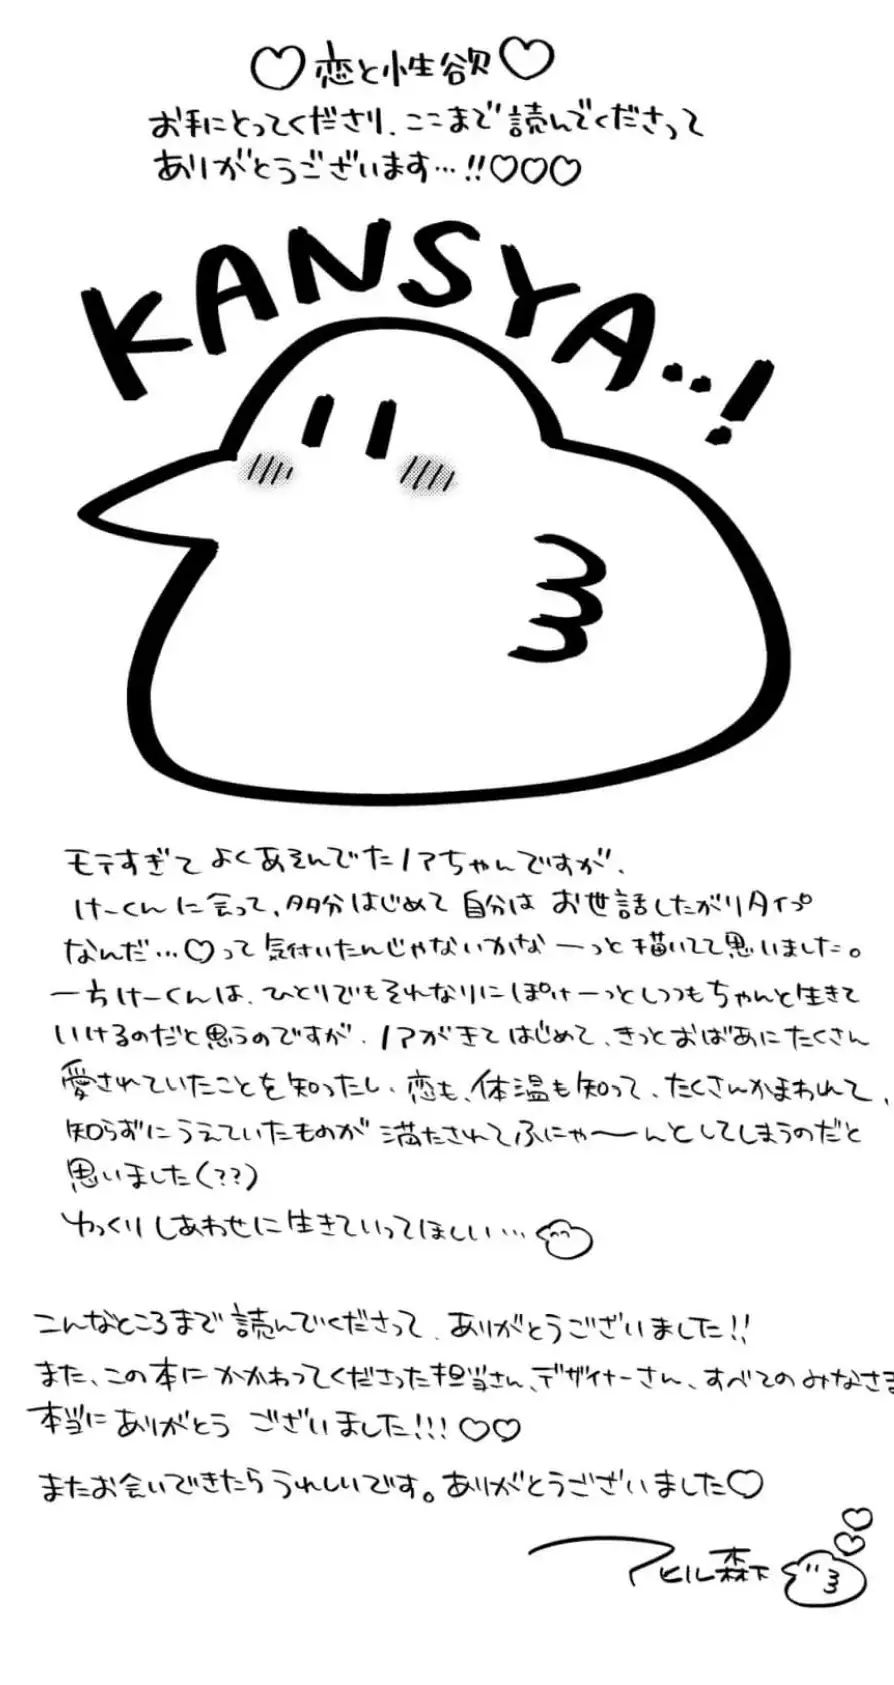 ♡恋と性欲♡
お手にとってくださり、ここまで読んでくださって
ありがとうございます…!!♡♡♡
KANSYA..!
モテすぎてよくあそんでたノアちゃんですが、
けーくんに会って、多分はじめて自分はお世話したがりタイプ
なんだ…♡って気付いたんじゃないかなーっと描いてて思いました。
一方けーくんは、ひとりでもそれなりにぽけーっとしつつもちゃんと生きて
いけるのだと思うのですが、ノアがきてはじめて、きっとおばあにたくさん
愛されていたことを知ったし、恋も、体温も知って、たくさんかまわれて、
知らずにうえていたものが満たされてふにゃ〜んとしてしまうのだと
思いました(??)
ゆっくりしあわせに生きていってほしい…
こんなところまで読んでくださって、ありがとうございました!!
また、この本にかかわってくださった担当さん、デザイナーさん、すべてのみなさま
本当にありがとうございました!!!♡♡
またお会いできたらうれしいです。ありがとうございました♡
アヒル森下